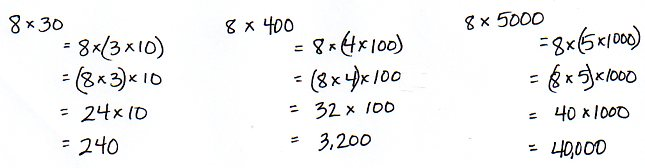 8 × 30
= 8×(3×10)
= (8×3)×10
= 24×10
= 240
8 × 400
= 8×(4×100)
= (8×4)×100
= 32 × 100
= 3,200
8 × 5000
= 8×(5×1000)
= (8×5)×1000
= 40 ×1000
= 40,000